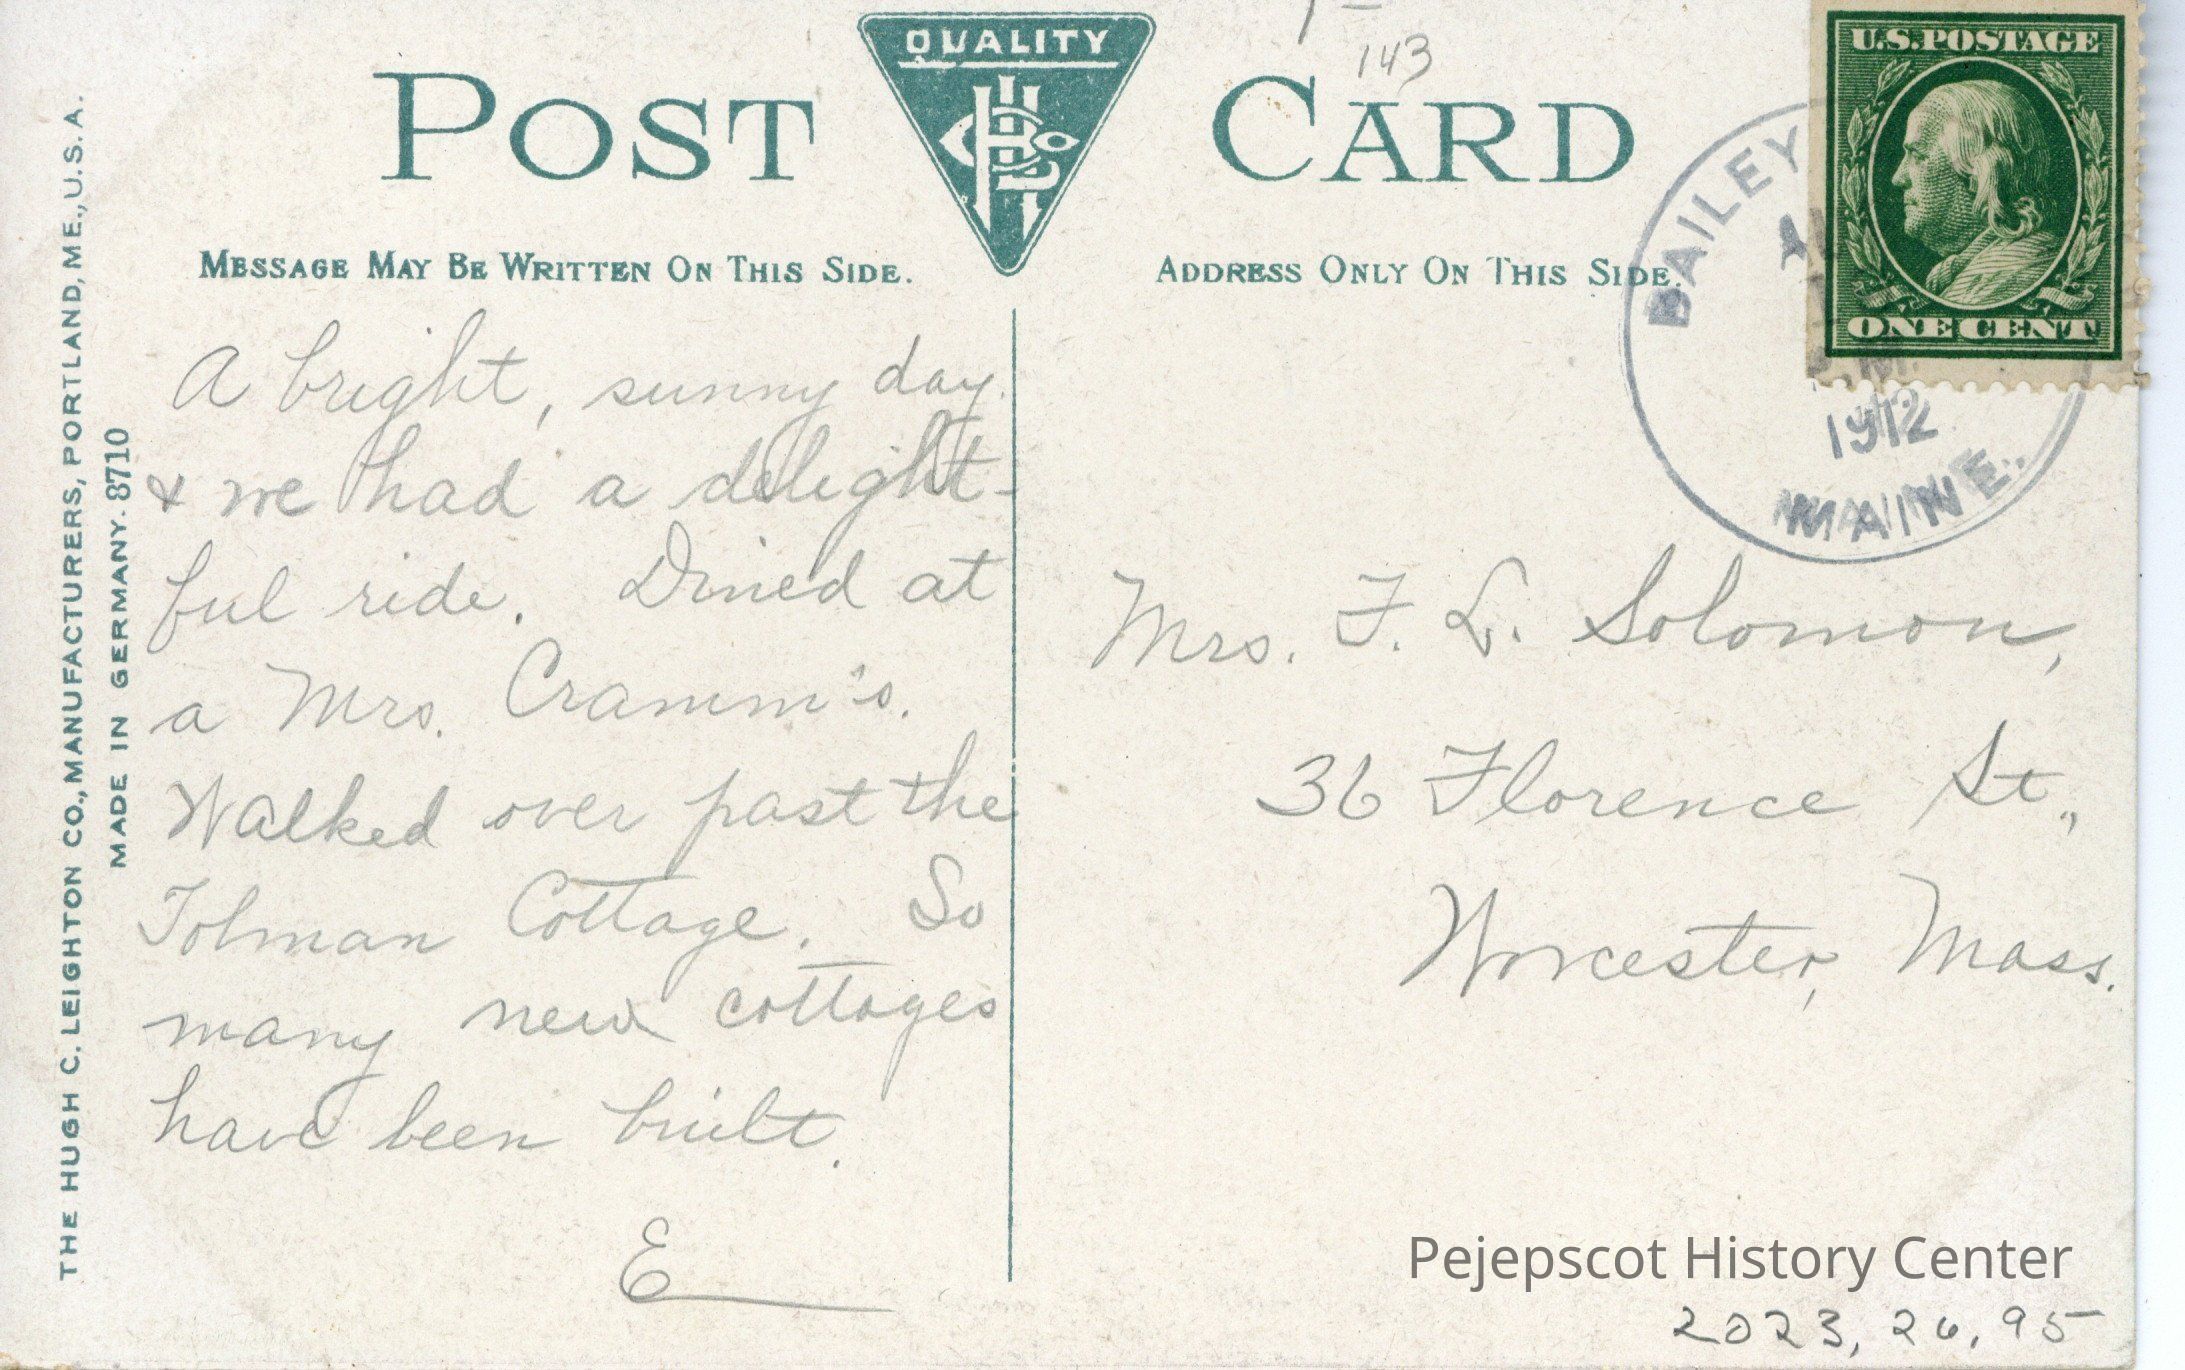 QUALITY
POST CARD
143
U.S. POSTAGE
ONE CENT
BAILEY
1912
MAINE.
MESSAGE MAY BE WRITTEN ON THIS SIDE.
ADDRESS ONLY ON THIS SIDE.
THE HUGH C. LEIGHTON CO., MANUFACTURERS, PORTLAND, ME., U.S.A.
MADE IN GERMANY. 8710
A bright, sunny day.
& we had a delight-
ful ride. Dined at
a Mrs. Cramm's.
Walked over past the
Tolman Cottage. So
many new cottages
have been built.
E
Mrs. F. L. Solomon,
36 Florence St.,
Worcester, Mass.
Pejepscot History Center
2023, 26, 95